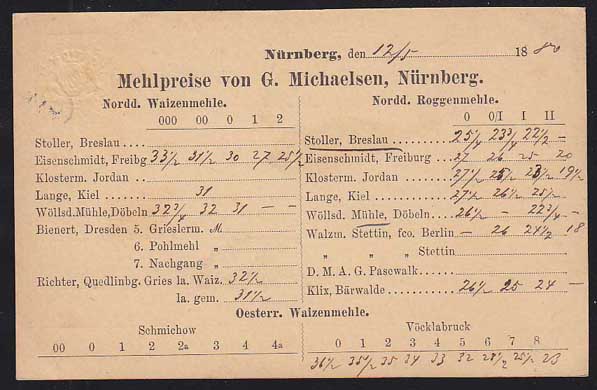 Nürnberg, den 12/5 1880
Mehlpreise von G. Michaelsen, Nürnberg.
Nordd. Waizenmehle.
000 00 0 1 2
Stoller, Breslau
Eisenschmidt, Freibg 33 1/2 31 1/2 30 27 25 1/2
Klosterm. Jordan
Lange, Kiel 31
Wöllsd. Mühle, Döbeln 32 3/4 32 31 — —
Bienert, Dresden 5. Grieslerm. M
6. Pohlmehl „
7. Nachgang „
Richter, Quedlinbg. Gries Ia Waiz. 32 1/2
Ia. gem. 31 1/2
Nordd. Roggenmehle.
0 0/I I II
Stoller, Breslau 25 1/4 23 3/4 22 1/2 —
Eisenschmidt, Freiburg 27 26 25 20
Klosterm. Jordan 27 1/2 25 1/2 23 1/2 19 1/2
Lange, Kiel 27 1/2 26 1/2 25 1/2
Wöllsd. Mühle, Döbeln 26 1/2 — 22 3/4 —
Walzm. Stettin, fco. Berlin — 26 24 1/2 18
„ „ „ Stettin
D. M. A. G. Pasewalk
Klix, Bärwalde 26 1/2 25 24 —
Oesterr. Waizenmehle.
Schmichow
00 0 1 2 2a 3 4 4a
Vöcklabruck
0 1 2 3 4 5 6 7 8
36 1/2 35 1/2 35 34 33 32 28 1/2 25 1/2 23